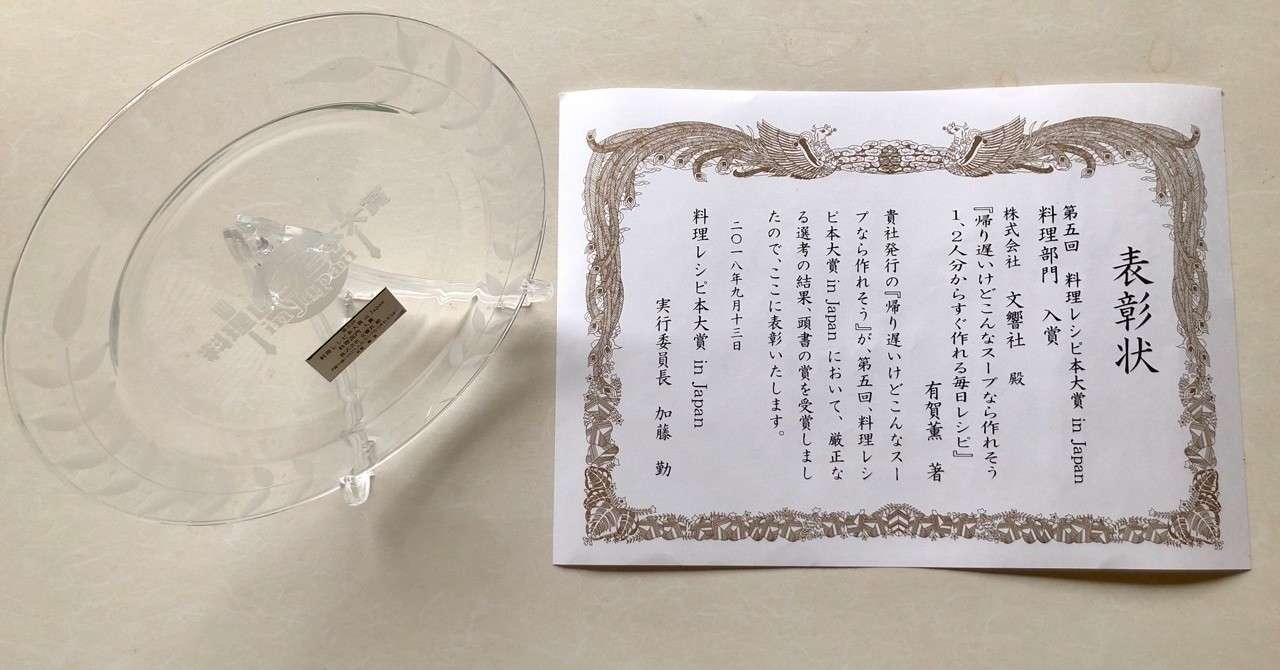 表彰状
第五回 料理レシピ本大賞 in Japan
料理部門 入賞
株式会社 文響社 殿
『帰り遅いけどこんなスープなら作れそう
1、2人分からすぐ作れる毎日レシピ』
有賀薫 著
貴社発行の『帰り遅いけどこんなスー
プなら作れそう』が、第五回、料理レシ
ピ本大賞 in Japan において、厳正な
る選考の結果、頭書の賞を受賞しまし
たので、ここに表彰いたします。
二〇一八年九月十三日
料理レシピ本大賞 in Japan
実行委員長 加藤 勤
大賞
in Japan